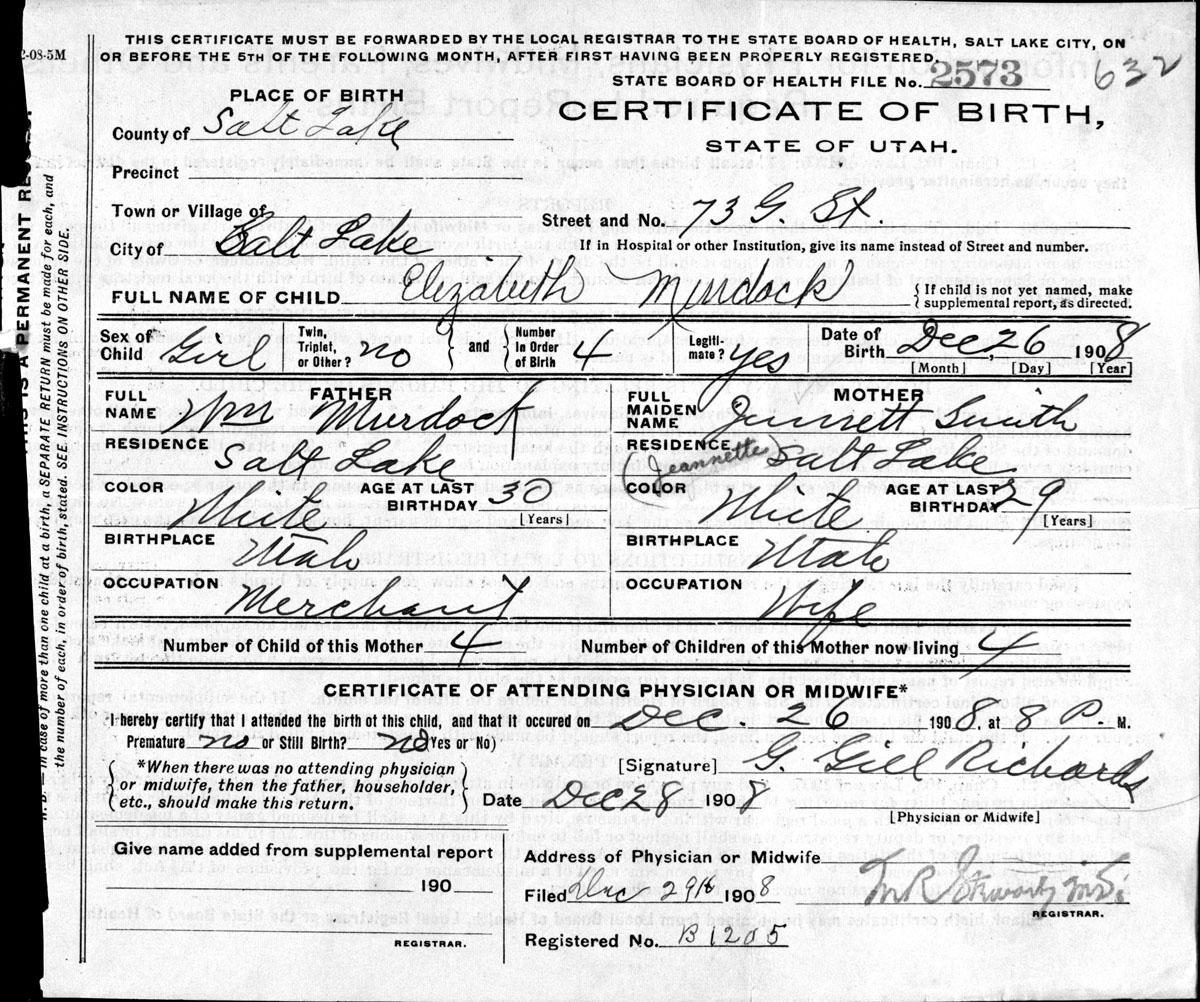 2-08-5M
THIS CERTIFICATE MUST BE FORWARDED BY THE LOCAL REGISTRAR TO THE STATE BOARD OF HEALTH, SALT LAKE CITY, ON
OR BEFORE THE 5TH OF THE FOLLOWING MONTH, AFTER FIRST HAVING BEEN PROPERLY REGISTERED.
STATE BOARD OF HEALTH FILE No. 2573 632
PLACE OF BIRTH
CERTIFICATE OF BIRTH,
STATE OF UTAH.
County of Salt Lake
Precinct
Town or Village of
Street and No. 73 G. St.
City of Salt Lake
If in Hospital or other Institution, give its name instead of Street and number.
FULL NAME OF CHILD Elizabeth Murdock
{If child is not yet named, make
supplemental report, as directed.
Sex of Child Girl
Twin, Triplet, or Other? no
and
Number in Order of Birth 4
Legiti-mate? yes
Date of Birth Dec, 26 1908
[Month] [Day] [Year]
FATHER
FULL NAME Wm Murdock
RESIDENCE Salt Lake
COLOR White
AGE AT LAST BIRTHDAY 30 [Years]
BIRTHPLACE Utah
OCCUPATION Merchant
MOTHER
FULL MAIDEN NAME Jennett Smith
(Jeannette)
RESIDENCE Salt Lake
COLOR White
AGE AT LAST BIRTHDAY 29 [Years]
BIRTHPLACE Utah
OCCUPATION Wife
Number of Child of this Mother 4
Number of Children of this Mother now living 4
CERTIFICATE OF ATTENDING PHYSICIAN OR MIDWIFE*
I hereby certify that I attended the birth of this child, and that it occured on Dec. 26 1908, at 8 P. M.
Premature no or Still Birth? no (Yes or No)
*When there was no attending physician
or midwife, then the father, householder,
etc., should make this return.
[Signature] G. Gill Richards
Date Dec 28 1908
[Physician or Midwife]
Give name added from supplemental report
190
REGISTRAR.
Address of Physician or Midwife
Filed Dec 29th 1908
REGISTRAR.
Registered No. B1205
THIS IS A PERMANENT
N.B.—In case of more than one child at a birth, a SEPARATE RETURN must be made for each, and
the number of each, in order of birth, stated. SEE INSTRUCTIONS ON OTHER SIDE.